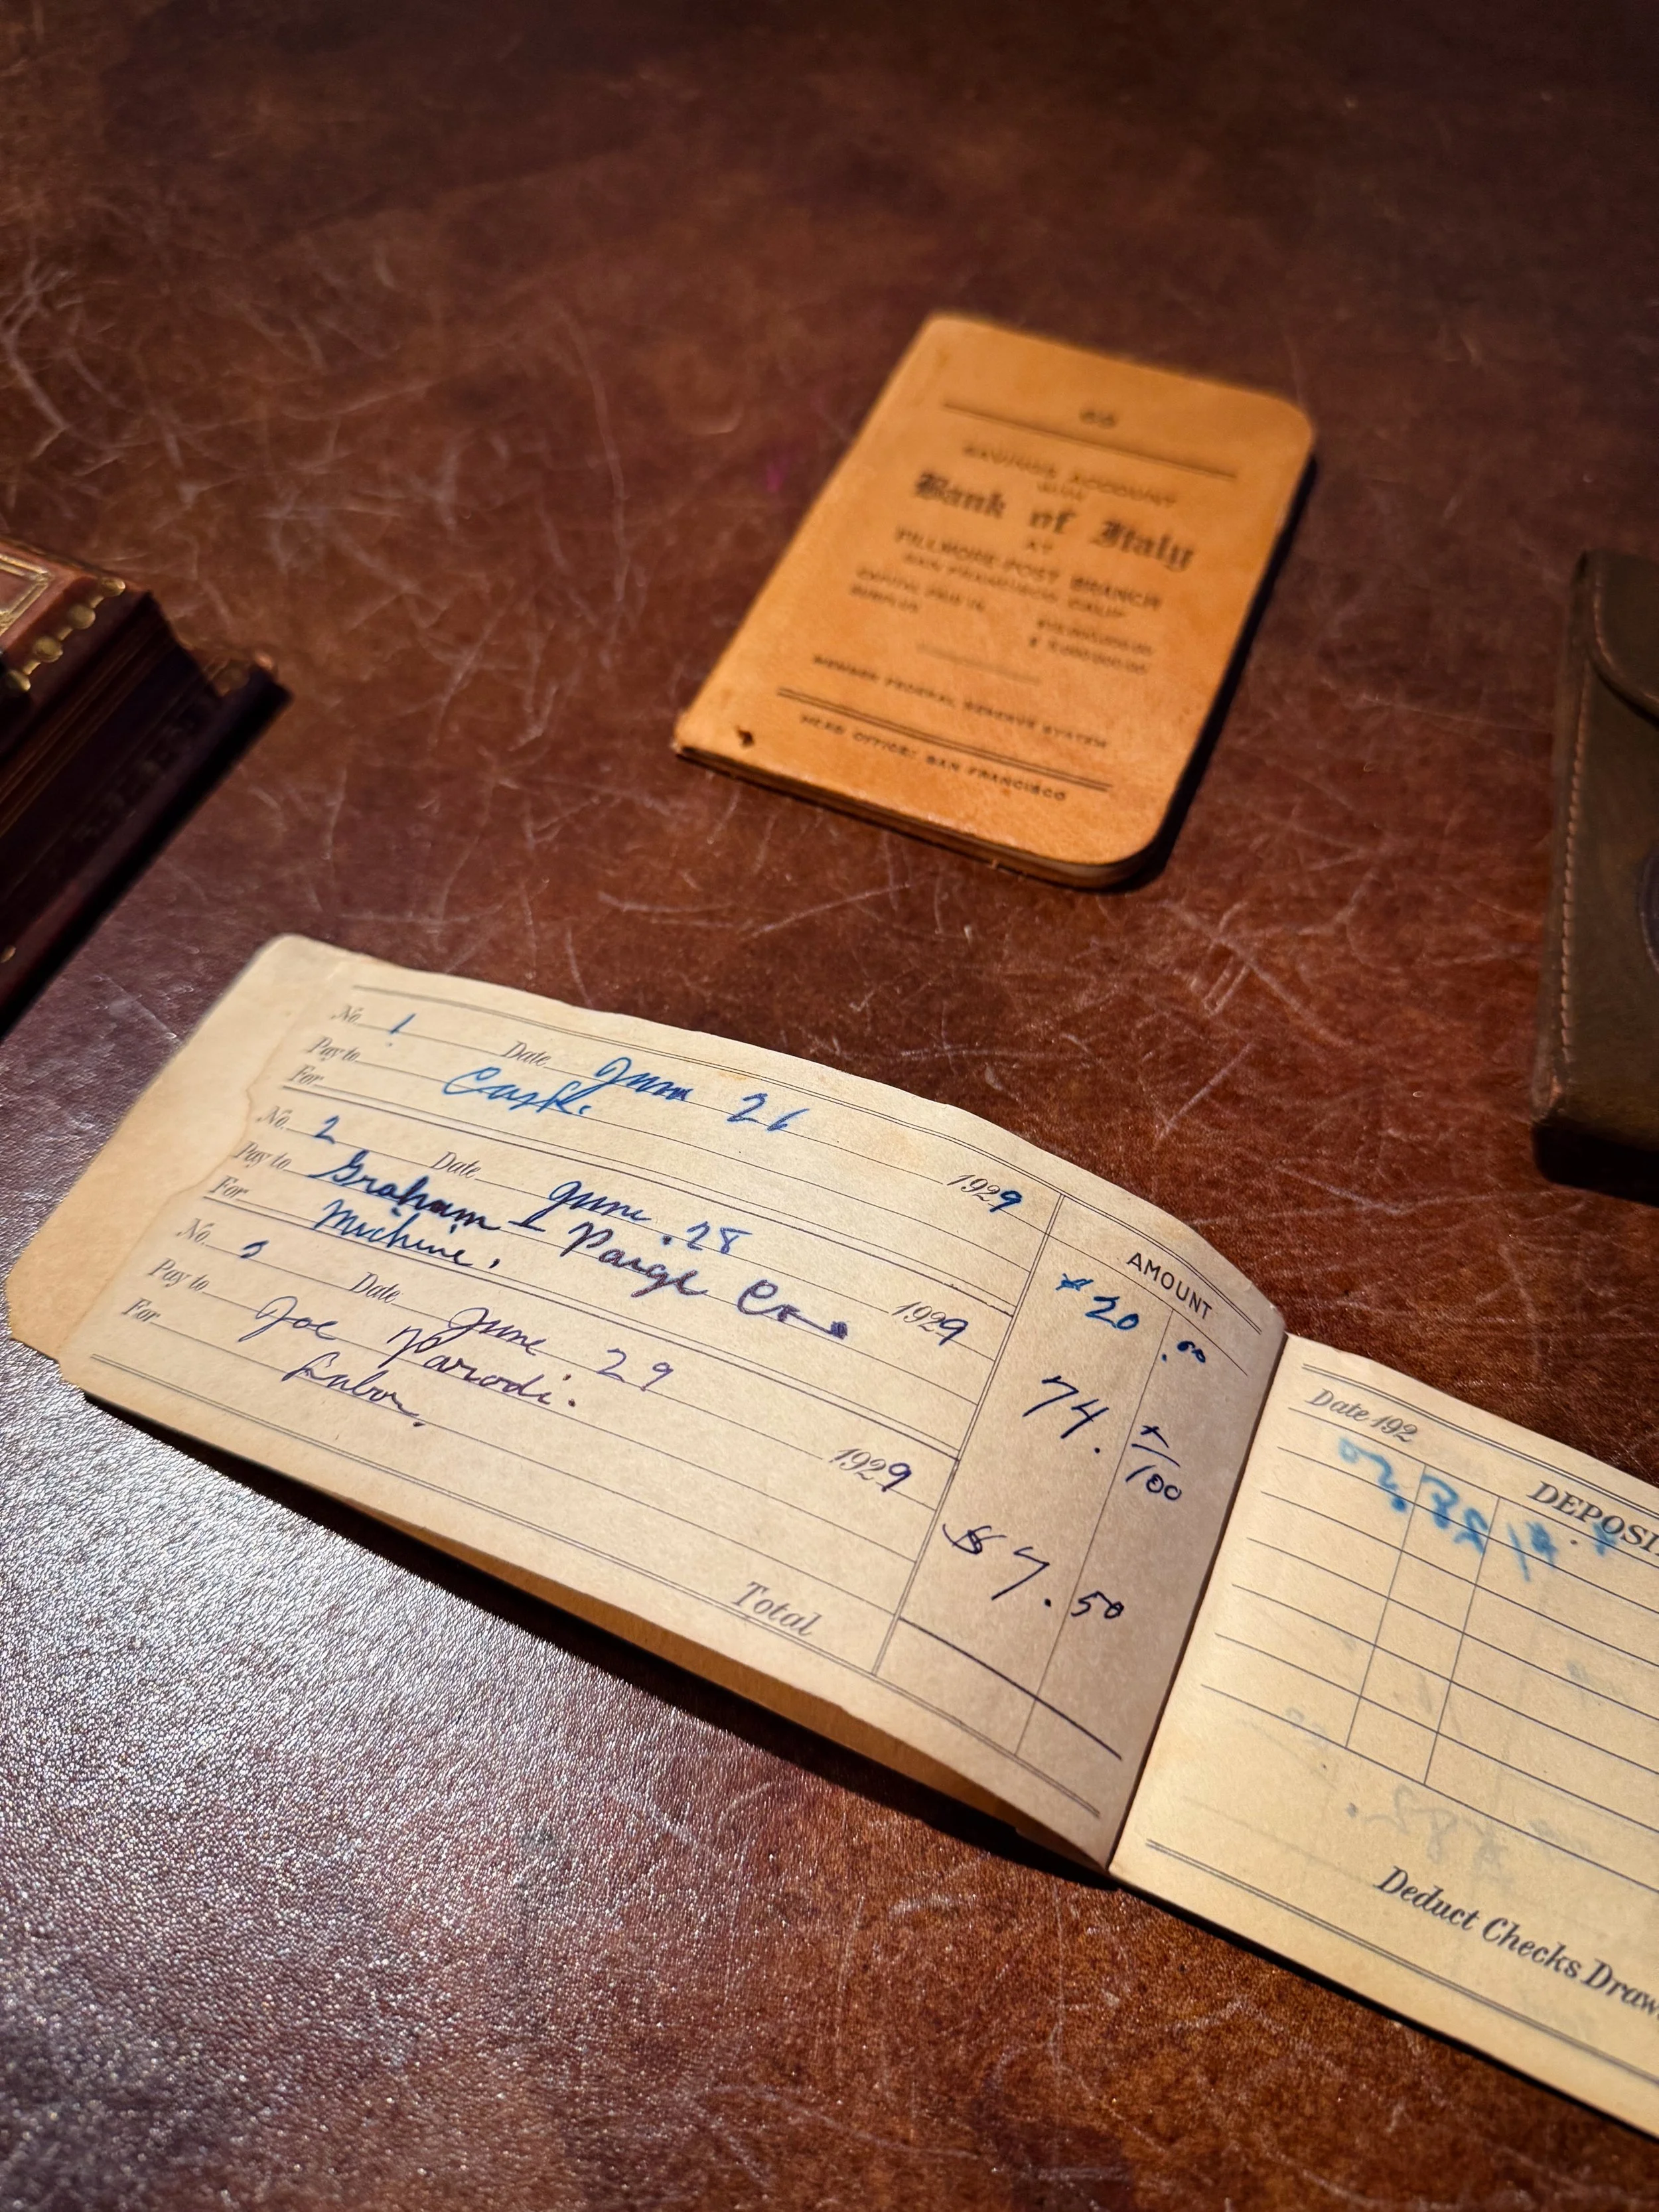 SAVINGS ACCOUNT
WITH
Bank of Italy
AT
FILLMORE-POST BRANCH
SAN FRANCISCO, CALIF.
CAPITAL PAID IN
SURPLUS
MEMBER FEDERAL RESERVE SYSTEM
HEAD OFFICE: SAN FRANCISCO
No. 1 Date June 26 1929
Pay to Cash.
For
AMOUNT
$20.00
No. 2 Date June. 28 1929
Pay to Graham-Paige
For Machine.
74. x/100
No. 3 Date June 29 1929
Pay to Joe Parodi.
For Labor.
$7.50
Total
Date 192
DEPOSI
Deduct Checks Draw